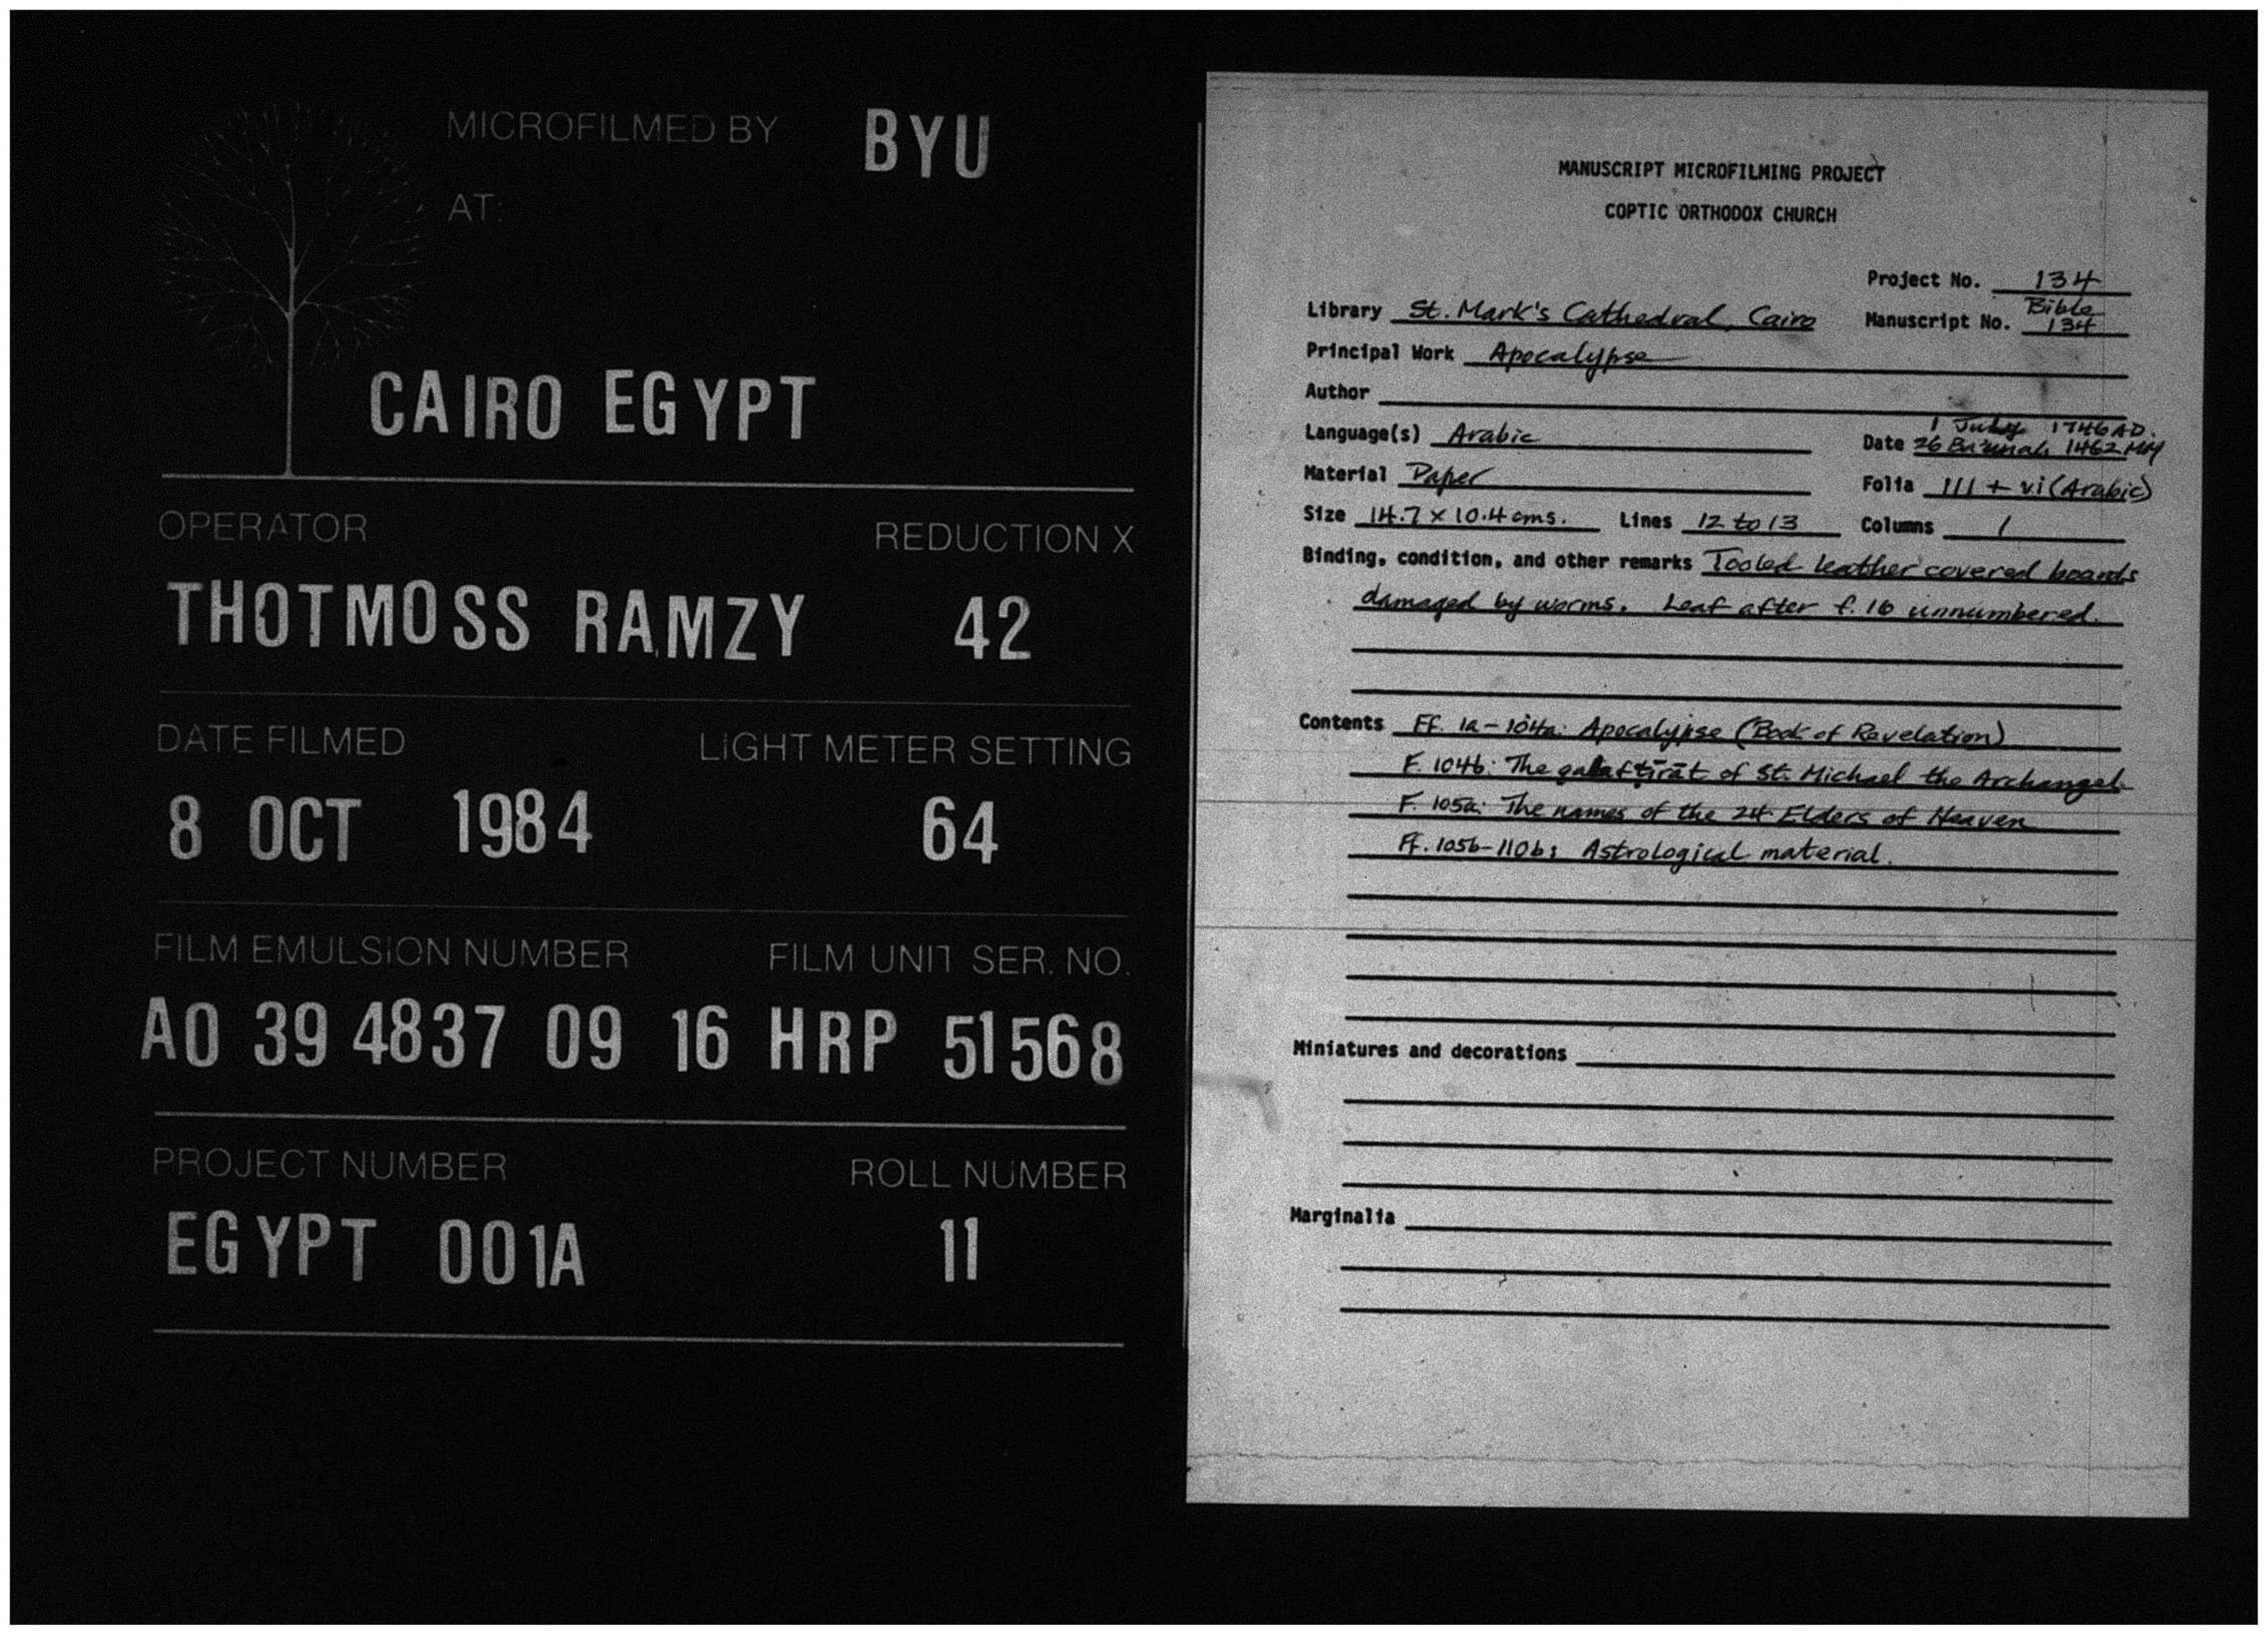 MICROFILMED BY BYU
AT:
CAIRO EGYPT
OPERATOR REDUCTION X
THOTMOSS RAMZY 42
DATE FILMED LIGHT METER SETTING
8 OCT 1984 64
FILM EMULSION NUMBER FILM UNIT SER. NO.
A0 39 4837 09 16 HRP 51568
PROJECT NUMBER ROLL NUMBER
EGYPT 001A 11
MANUSCRIPT MICROFILMING PROJECT
COPTIC ORTHODOX CHURCH
Project No. 134
Library St. Mark's Cathedral, Cairo Manuscript No. Bible 134
Principal Work Apocalypse
Author
1 July 1746 AD.
Language(s) Arabic Date 26 1462 MM
Material Paper Folia 111 + vi (Arabic)
Size 14.7 x 10.4 cms. Lines 12 to 13 Columns 1
Binding, condition, and other remarks Tooled leather covered boards
damaged by worms. Leaf after f. 16 unnumbered.
Contents Ff. 1a-104a: Apocalypse (Book of Revelation)
F. 104b: The of St. Michael the Archangel.
F. 105a: The names of the 24 Elders of Heaven
Ff. 105b-110b: Astrological material.
Miniatures and decorations
Marginalia